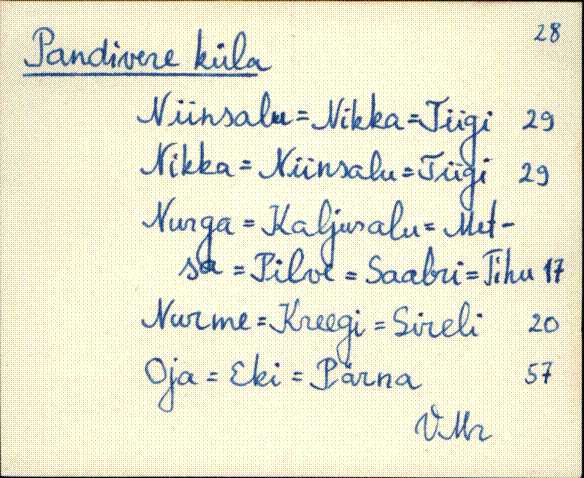 28
Pandivere küla
Niinsalu = Nikka = Tiigi 29
Nikka = Niinsalu = Tiigi 29
Nurga = Kaljusalu = Met-
sa = Pilve = Saabri = Tihu 17
Nurme = Kreegi = Sireli 20
Oja = Eki = Pärna 57
V Mr